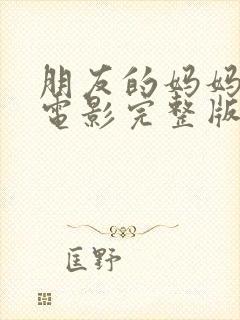 朋友的妈妈
电影完整版
匡野